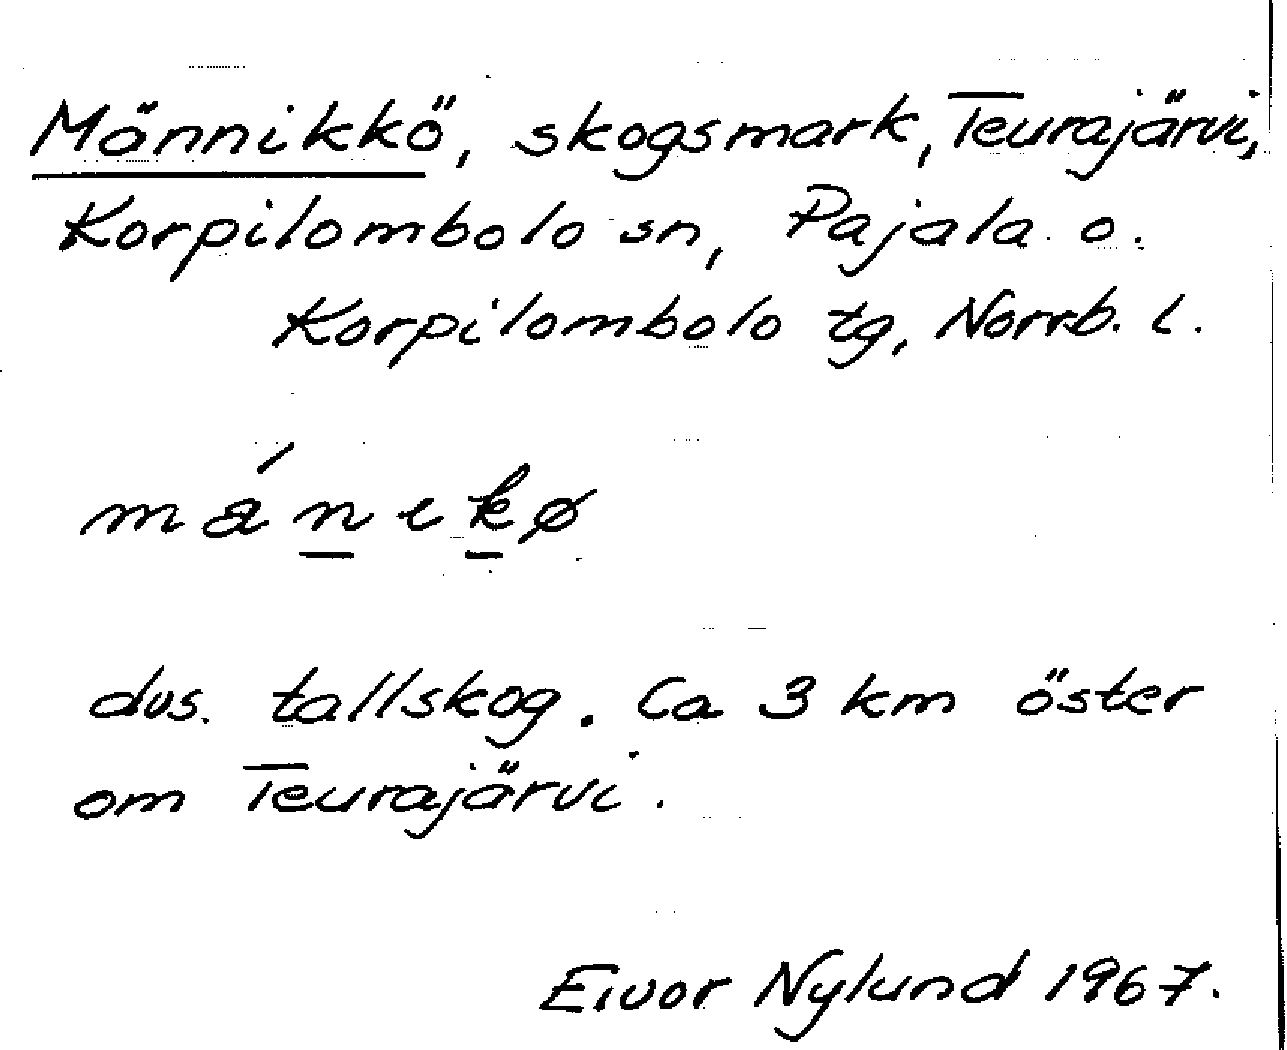 Männikkö, skogsmark, Teurajärvi,
Korpilombolo sn, Pajala o.
Korpilombolo tg, Norrb. l.
mánekø
dvs. tallskog. Ca 3 km öster
om Teurajärvi.
Eivor Nylund 1967.